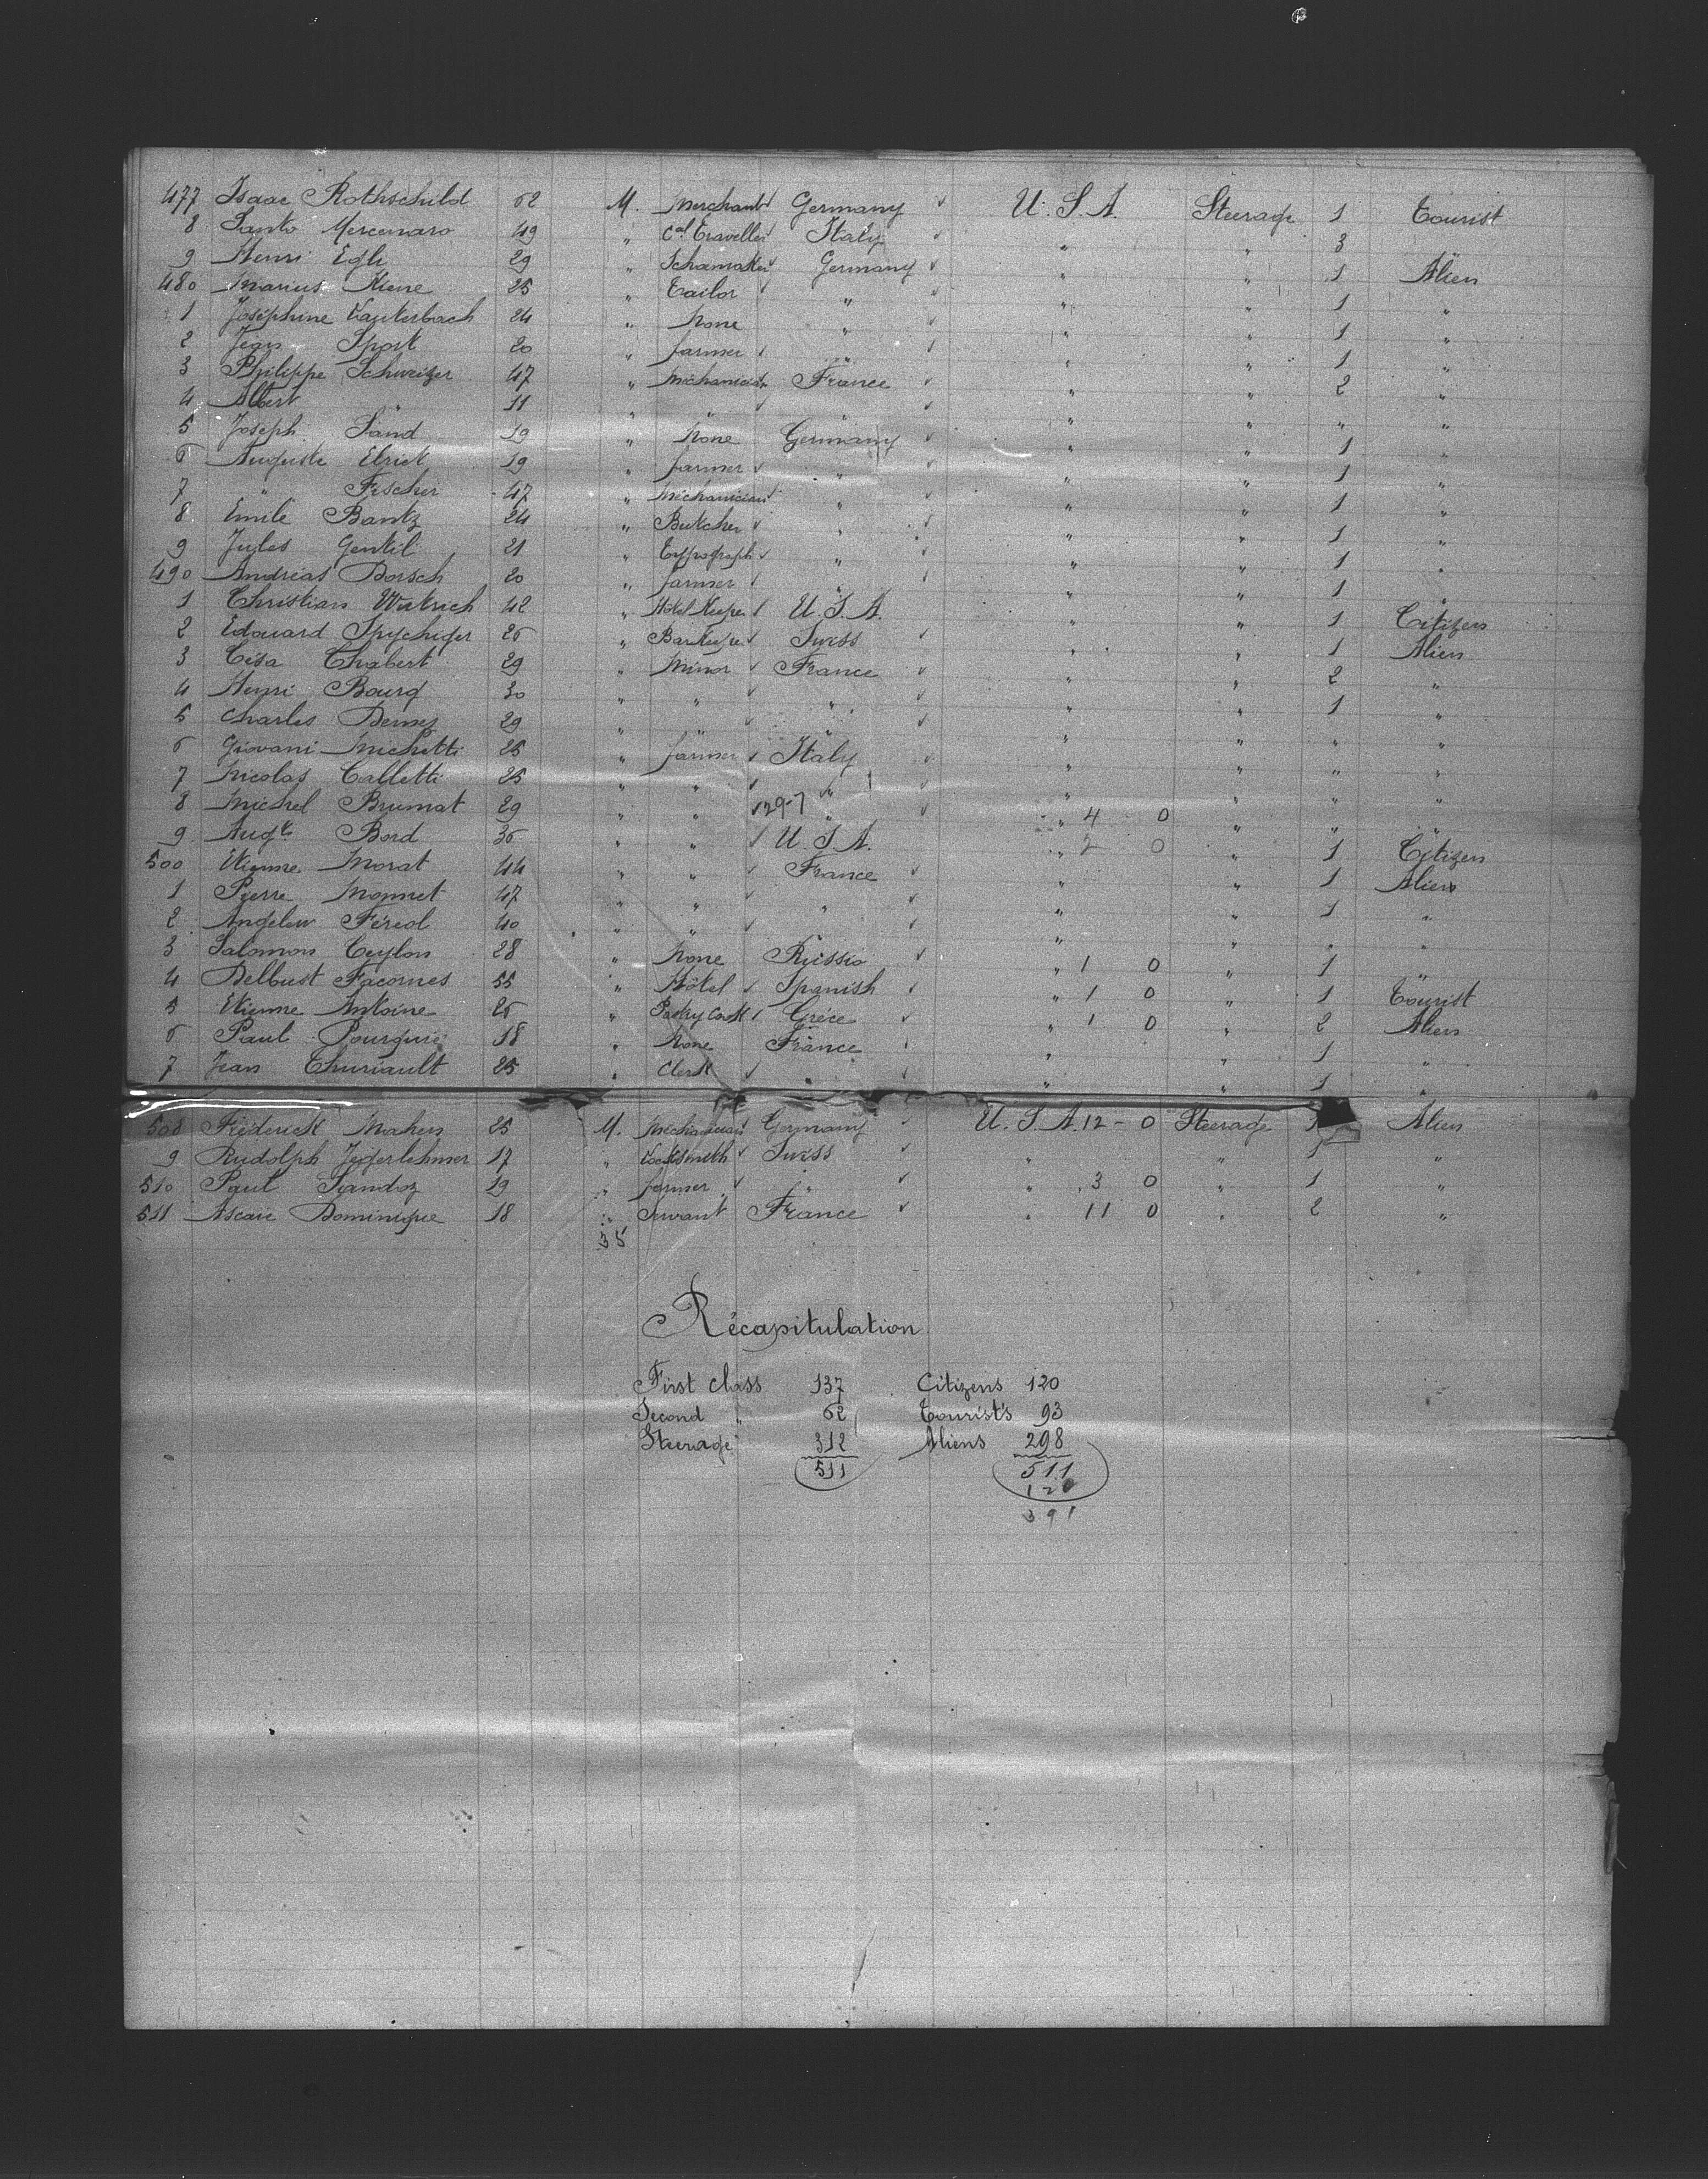 477 Isaac Rothschild 62 M. Merchant Germany U.S.A. Steerage 1 Tourist
8 Santo Mercenaro 49 " Cal Traveller Italy " " 3 "
9 Henri Egli 29 " Schamaker Germany " " 1 Alien
480 Marius Kiene 25 " Tailor " " " 1 "
1 Joséphine Lauterbach 24 " None " " " 1 "
2 Jean Sport 20 " farmer " " " 1 "
3 Philippe Schweizer 47 " Mechanician France " " 2 "
4 Albert " 11 " " " " " " "
5 Joseph Sand 19 " None Germany " " 1 "
6 Auguste 19 " farmer " " " 1 "
7 " Fischer 47 " Mechanician " " " 1 "
8 Emile Bantz 24 " Butcher " " " 1 "
9 Jules Gentil 21 " Typograph " " " 1 "
490 Andrias Dorsch 20 " farmer " " " 1 "
1 Christian Wutrich 42 " Hôtel Keeper U.S.A. " 1 Citizen
2 Edouard Spychiger 26 " Barkeeper Swiss " " 1 Alien
3 Chabert 29 " Minor France " " 2 "
4 Henri Bourg 30 " " " " " 1 "
5 Charles 29 " " " " " " "
6 Giovani Michetti 25 " farmer Italy " " " "
7 Nicolas Calletti 25 " " " " " " "
8 Michel Brumat 29 " " 129-7 " " 4 0 " " "
9 Augte Bord 36 " " U.S.A. " 2 0 " 1 Citizen
500 Etienne Morat 44 " " France " " 1 Alien
1 Pierre Monnet 47 " " " " " 1 "
2 Féréol 40 " " " " " "
3 Salomon Ceylon 28 " None Russia " 1 0 " 1 "
4 Delbust Facornes 55 " Hôtel Spanish " 1 0 " 1 Tourist
5 Etienne Antoine 26 " Pastry Cook Gréce " 1 0 " 2 Alien
6 Paul Pourquié 18 " None France " " 1 "
7 Jean Thuriault 25 " Clerk " " " 1 "
508 Fréderick Mahen 25 M. Mechanician Germany U.S.A. 12 - 0 Steerage 1 Alien
9 Rudolph Jegerlehner 17 " Locksmith Swiss " " 1 "
510 Paul Sandoz 19 " farmer " " 3 0 " 1 "
511 Ascaie Dominique 18 " Servant France " 11 0 " 2 "
35
Récapitulation
First class 137 Citizens 120
Second " 62 Tourist's 93
Steerage 312 Aliens 298
511 511
120
391